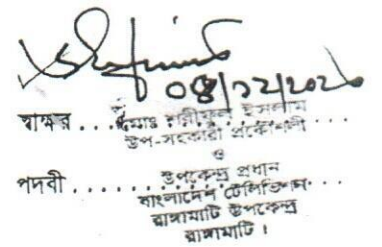 ০৪/১২/২০২০
স্বাক্ষর ... মোঃ শরীফুল ইসলাম
উপ-সহকারী প্রকৌশলী
ও
পদবী ... উপকেন্দ্র প্রধান
বাংলাদেশ টেলিভিশন
রাঙ্গামাটি উপকেন্দ্র
রাঙ্গামাটি।